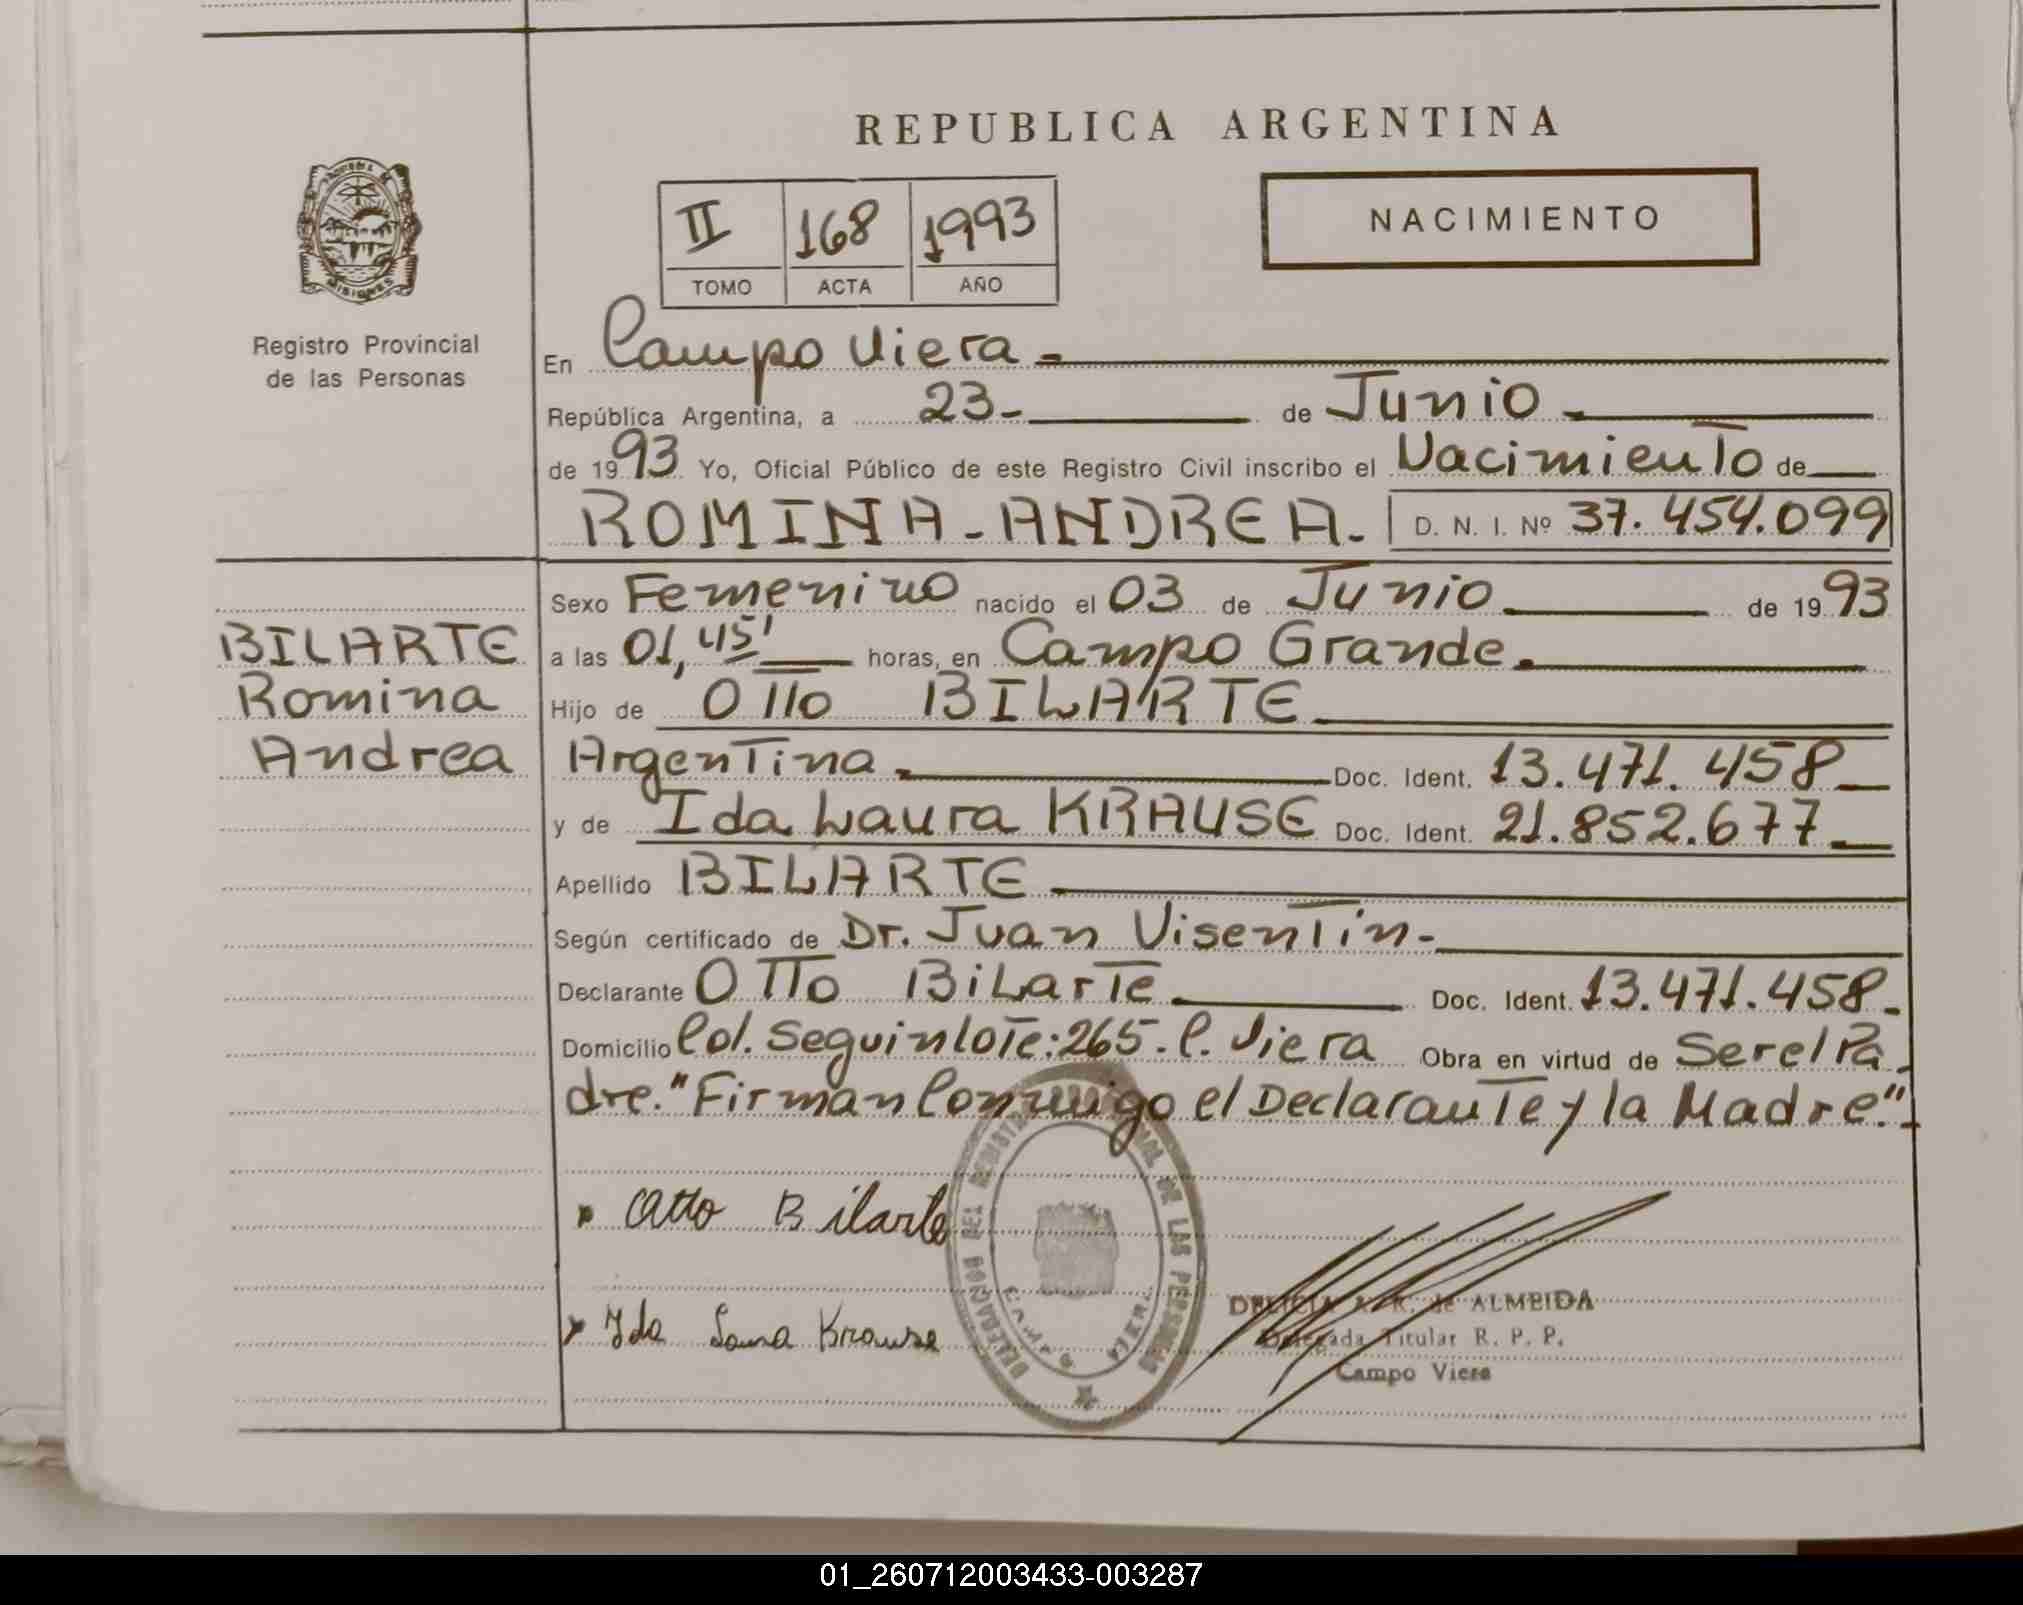 REPUBLICA ARGENTINA
II 168 1993
TOMO ACTA AÑO
NACIMIENTO
MISIONES
Registro Provincial
de las Personas
En Campo Viera
República Argentina, a 23 de Junio
de 1993 Yo, Oficial Público de este Registro Civil inscribo el Nacimiento de
ROMINA - ANDREA - D. N. I. Nº 37.454.099
Sexo Femenino nacido el 03 de Junio de 1993
BILARTE
Romina
Andrea
a las 01,45' horas, en Campo Grande.
Hijo de Otto BILARTE
Argentina Doc. Ident. 13.471.458
y de Ida Laura KRAUSE Doc. Ident. 21.852.677
Apellido BILARTE
Según certificado de Dr. Juan Visentin
Declarante Otto Bilarte Doc. Ident. 13.471.458
Domicilio Col. Seguin lote: 265. C. Viera Obra en virtud de Ser el Pa
dre. "Firman Conmigo el Declarante y la Madre".
Otto Bilarte
Ida Laura Krause
DELEGACION DEL REGISTRO PROVINCIAL DE LAS PERSONAS
CAMPO VIERA
DELICIA A. R. de ALMEIDA
Delegada Titular R. P. P.
Campo Viera
01_260712003433-003287